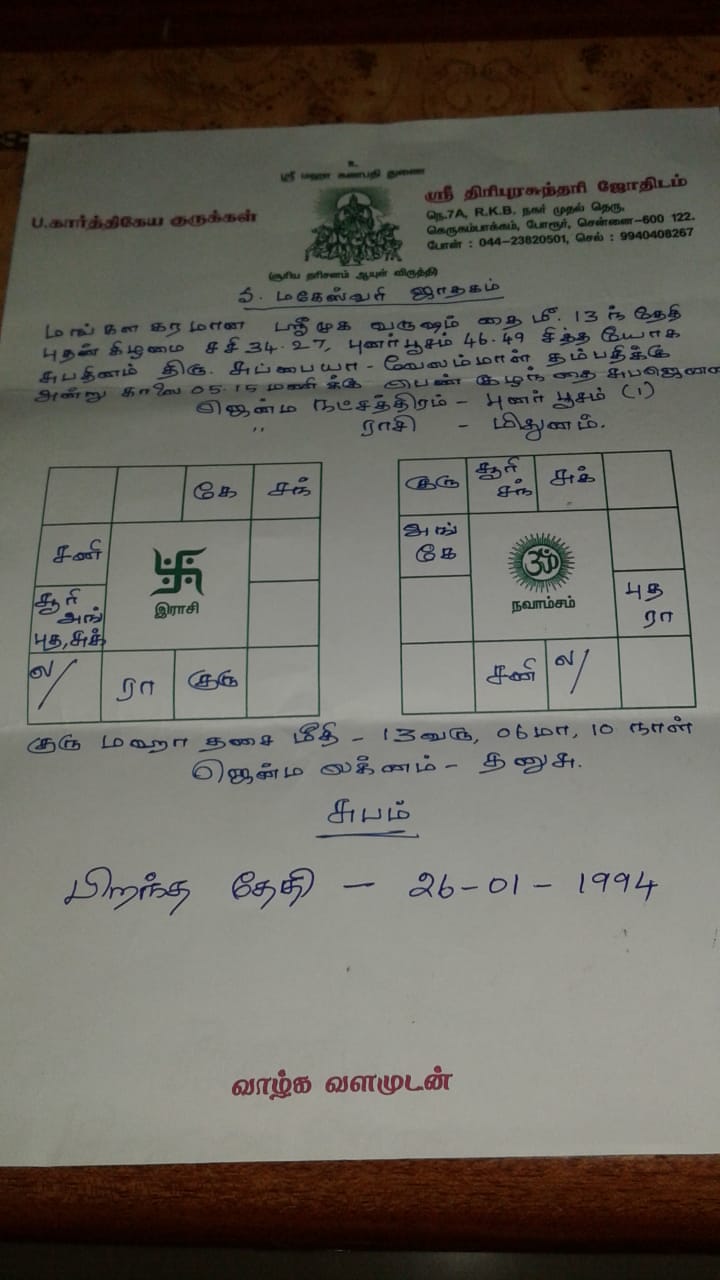 உ
ஸ்ரீ மஹா கணபதி துணை
ப.கார்த்திகேய குருக்கள்
ஸ்ரீ திரிபுரசுந்தரி ஜோதிடம்
நெ.7A, R.K.B. நகர் முதல் தெரு,
கெருகம்பாக்கம், போரூர், சென்னை-600 122.
போன் : 044-23820501, செல் : 9940408267
(சூரிய தரிசனம் ஆயுள் விருத்தி)
மகேஸ்வரி ஜாதகம்
மங்களகரமான ஸ்ரீமுக வருஷம் தை மீ 13 ந் தேதி
புதன் கிழமை சசி 34.27, புனர்பூசம் 46.49 சித்த யோக
சுபதினம் திரு. சுப்பையா - வேலம்மாள் தம்பதிக்கு
அன்று காலை 05.15 மணிக்கு பெண் குழந்தை சுபஜெனன
ஜென்ம நட்சத்திரம் - புனர் பூசம் (1)
,, ராசி - மிதுனம்.
கே சந்
சனி
சூரி
அங்
புத, சுக்
இராசி
ல/ ரா குரு
குரு சூரி சந் சுக்
அங்
கே
ௐ
நவாம்சம்
புத
ரா
சனி ல/
குரு மஹா தசை மீதி - 13 வரு, 06 மா, 10 நாள்
ஜென்ம லக்னம் - தனுசு.
சுபம்
பிறந்த தேதி - 26-01-1994
வாழ்க வளமுடன்